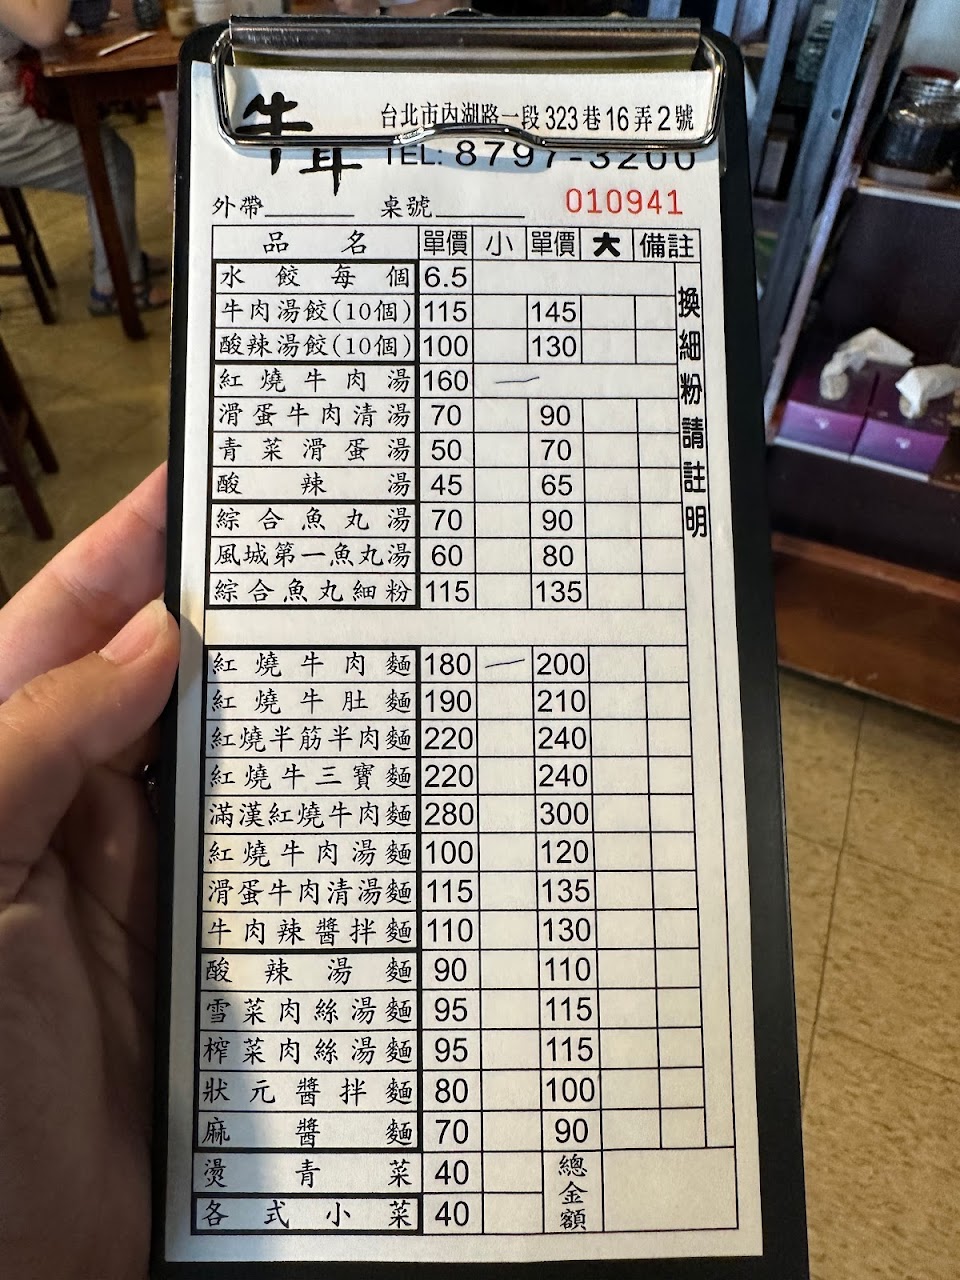 牛茸
台北市內湖路一段323巷16弄2號
TEL: 8797-3200
外帶 桌號 010941
品名 單價 小 單價 大 備註
水餃每個 6.5
牛肉湯餃(10個) 115 145
酸辣湯餃(10個) 100 130
紅燒牛肉湯 160 一
滑蛋牛肉清湯 70 90
青菜滑蛋湯 50 70
酸辣湯 45 65
綜合魚丸湯 70 90
風城第一魚丸湯 60 80
綜合魚丸細粉 115 135
換細粉請註明
紅燒牛肉麵 180 一 200
紅燒牛肚麵 190 210
紅燒半筋半肉麵 220 240
紅燒牛三寶麵 220 240
滿漢紅燒牛肉麵 280 300
紅燒牛肉湯麵 100 120
滑蛋牛肉清湯麵 115 135
牛肉辣醬拌麵 110 130
酸辣湯麵 90 110
雪菜肉絲湯麵 95 115
榨菜肉絲湯麵 95 115
狀元醬拌麵 80 100
麻醬麵 70 90
燙青菜 40
各式小菜 40
總金額